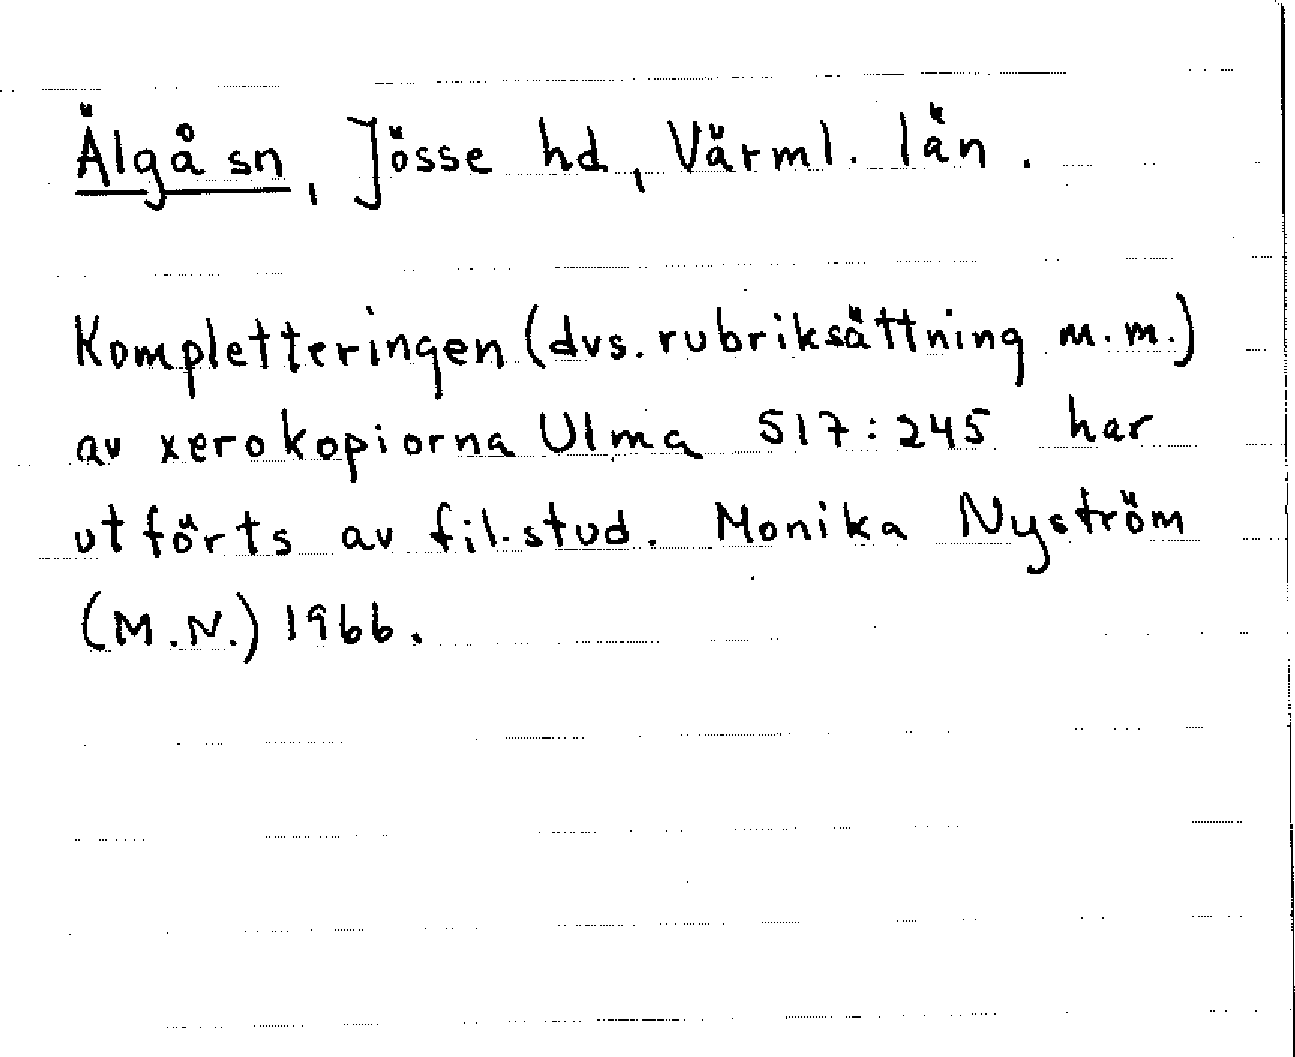 Älgå sn, Jösse hd, Värml. län.
Kompletteringen (dvs. rubriksättning m.m.)
av xerokopiorna Ulma 517:245 har
utförts av fil.stud. Monika Nyström
(M.N.) 1966.